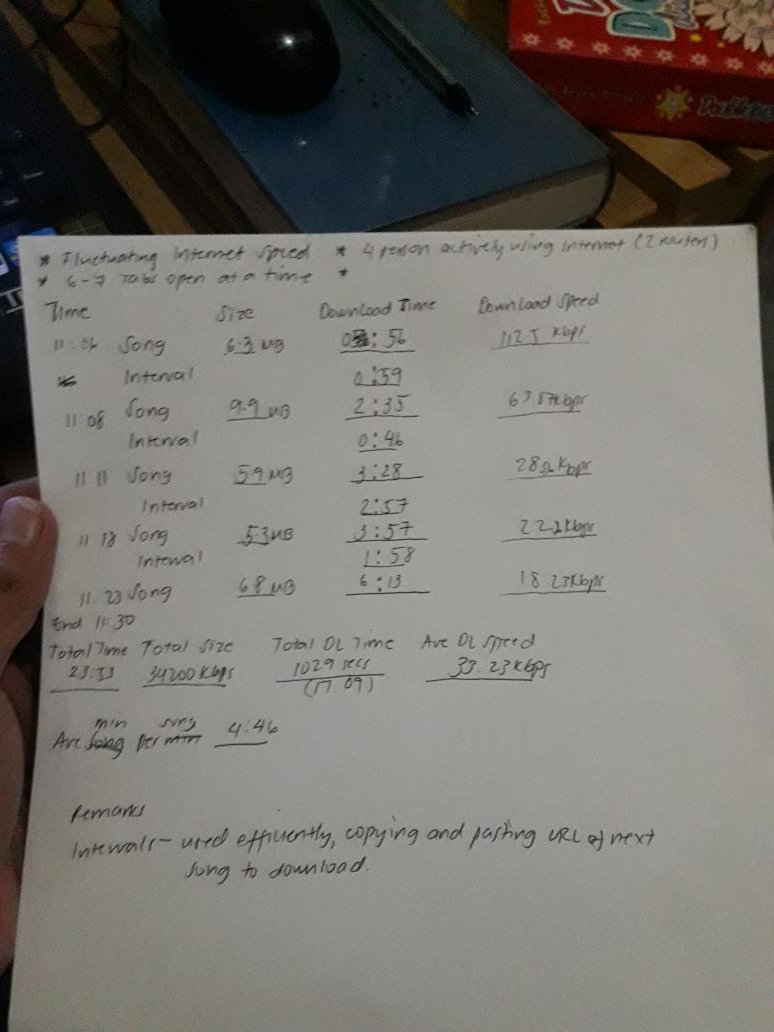 * Fluctuating Internet Speed * 4 person actively using Internet (2 routers)
* 6-7 Tabs open at a time *
Time Size Download Time Download Speed
11:06 Song 6.3 MB 0:56 112.5 Kbps
Interval 0:59
11:08 Song 9.9 MB 2:35 63.87 Kbps
Interval 0:46
11 11 Song 5.9 MB 3:28 Kbps
Interval 2:57
11 18 Song 5.3 MB 3:57 Kbps
Interval 1:58
11:23 Song 6.8 MB 6:13 18.23 Kbps
End 11:30
Total Time Total Size Total DL Time Ave DL Speed
23:53 34200 Kbps 1029 secs 33.23 Kbps
(17:09)
min song
Ave per 4:46
Remarks
Intervals - used efficently, copying and pasting URL of next
song to download.